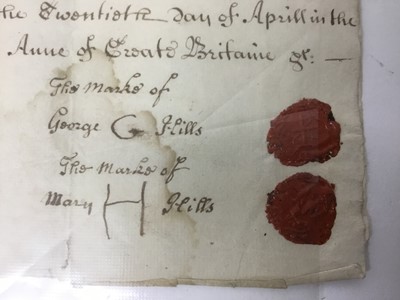 he Twentieth Day of Aprill in the
Anne of Greate Britaine &c: —
The Marke of
George G Hills
The Marke of
Mary H Hills